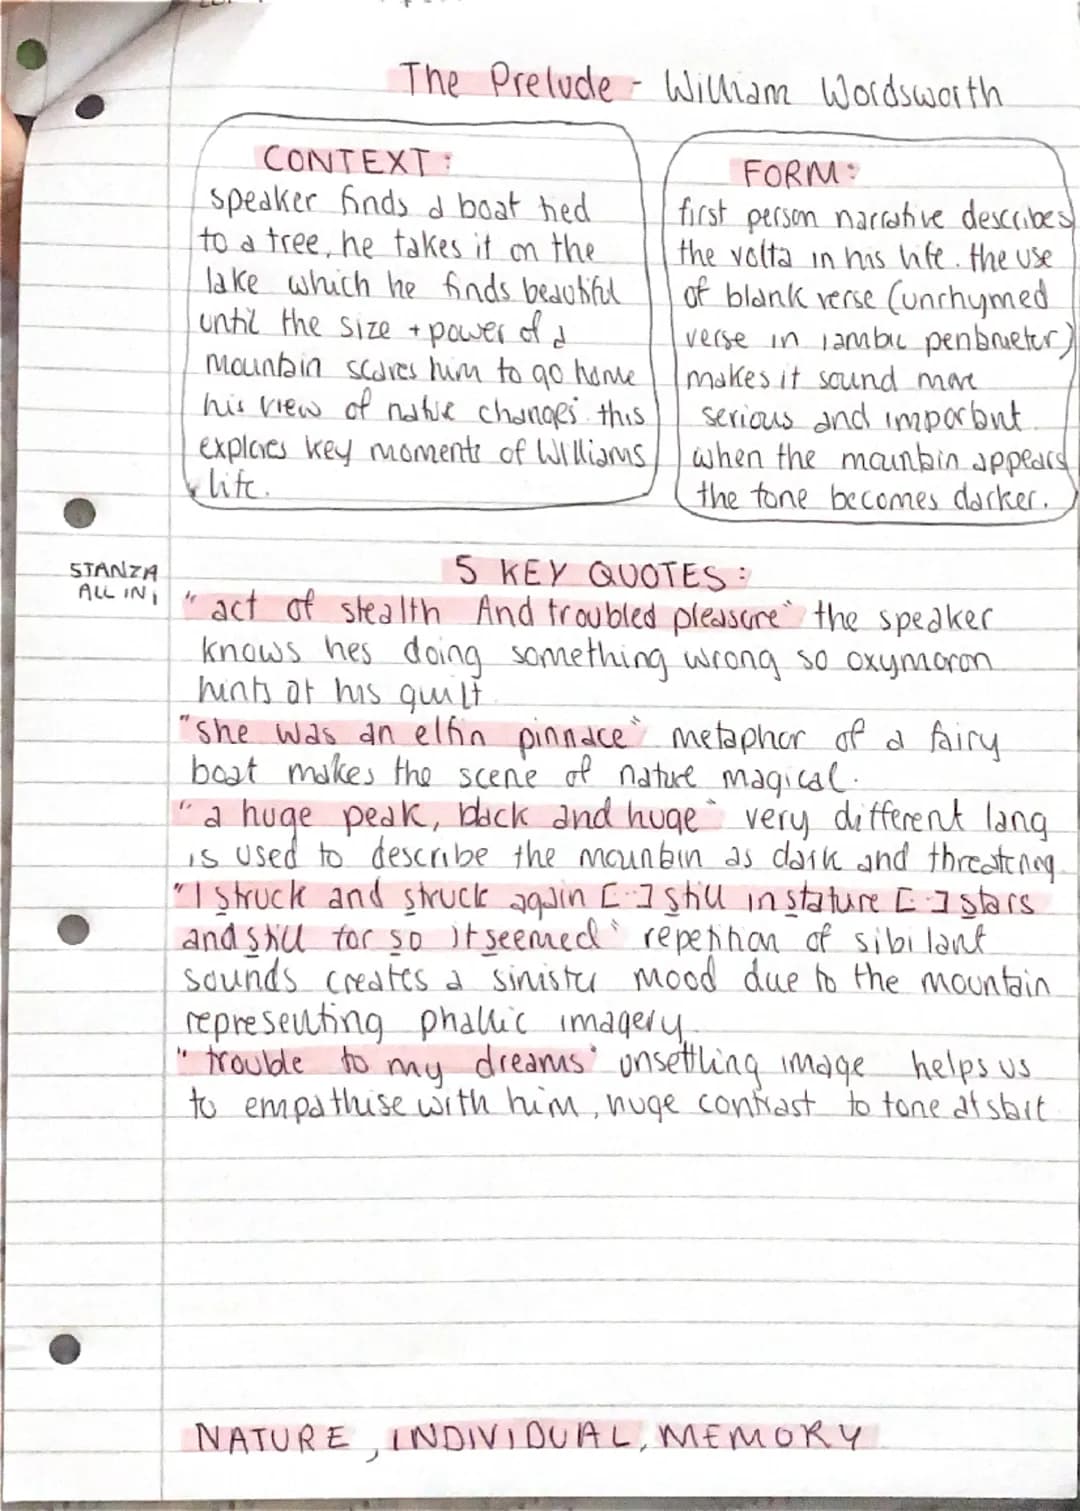 The Prelude - William Wordsworth
CONTEXT:
speaker finds a boat tied
to a tree, he takes it on the
lake which he finds beautiful
until the size + power of a
mountain scares him to go home
his view of nature changes. this
explores key moments of Williams
life.
FORM:
first person narrative describes
the volta in his life. the use
of blank verse (unrhymed
verse in iambic pentameter)
makes it sound more
serious and important.
when the mountain appears
the tone becomes darker.
STANZA
ALL IN 1
5 KEY QUOTES:
"act of stealth And troubled pleasure" the speaker
knows hes doing something wrong so oxymoron
hints at his guilt
"she was an elfin pinnace" metaphor of a fairy
boat makes the scene of nature magical.
"a huge peak, black and huge" very different lang
is used to describe the mountain as dark and threatening.
"I struck and struck again [..] still in stature [..] stars
and still for so it seemed" repetition of sibilant
sounds creates a sinister mood due to the mountain
representing phallic imagery.
"trouble to my dreams" unsettling image helps us
to empathise with him, huge contrast to tone at start
NATURE, INDIVIDUAL, MEMORY